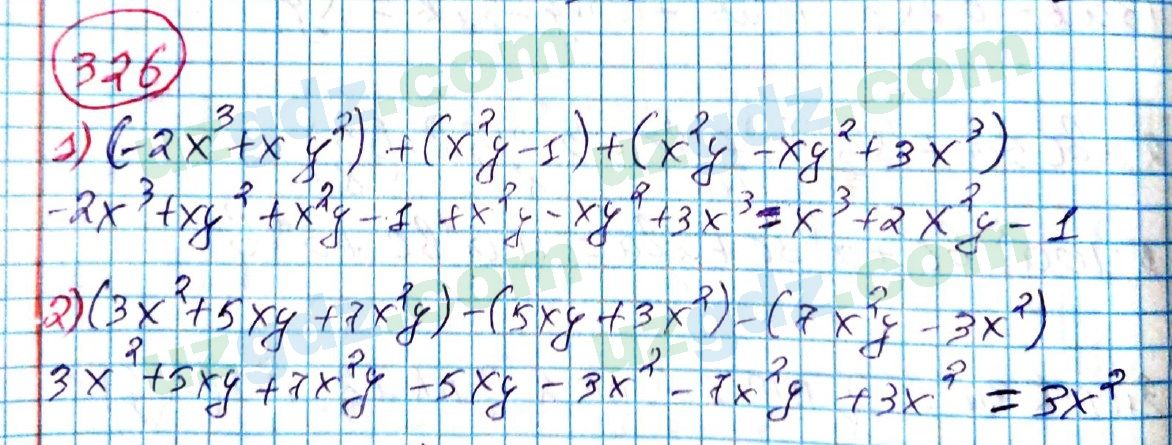 326
1) (-2x³+xy²)+(x²y-1)+(x²y-xy²+3x³)
-2x³+xy²+x²y-1+x²y-xy²+3x³=x³+2x²y-1
2) (3x²+5xy+7x²y)-(5xy+3x²)-(7x²y-3x²)
3x²+5xy+7x²y-5xy-3x²-7x²y+3x²=3x²
uzgdz.com
uzgdz.com
uzgdz.com
uzgdz.com